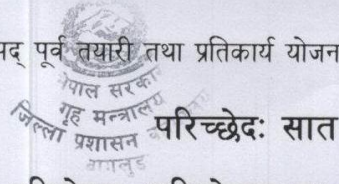 पद् पूर्व तयारी तथा प्रतिकार्य योजन
नेपाल सरकार
गृह मन्त्रालय
जिल्ला प्रशासन
परिच्छेदः सात